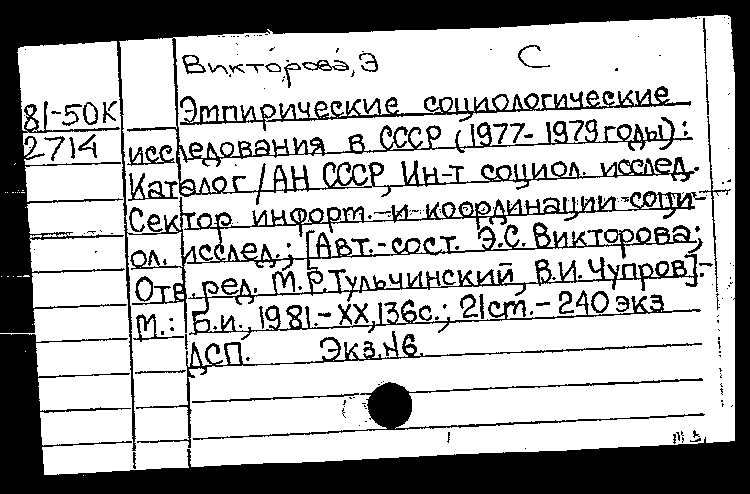 Викторова, Э С
81-50К Эмпирические социологические
2714 исследования в СССР (1977-1979 годы):
Каталог / АН СССР, Ин-т социол. исслед.
Сектор информ. и координации соци-
ол. исслед.; [Авт.-сост. Э.С. Викторова;
Отв. ред. М.Р. Тульчинский, В.И. Чупров].-
М.: Б.и., 1981.- XX, 136с.; 21 см.- 240 экз
ДСП. Экз.№6.